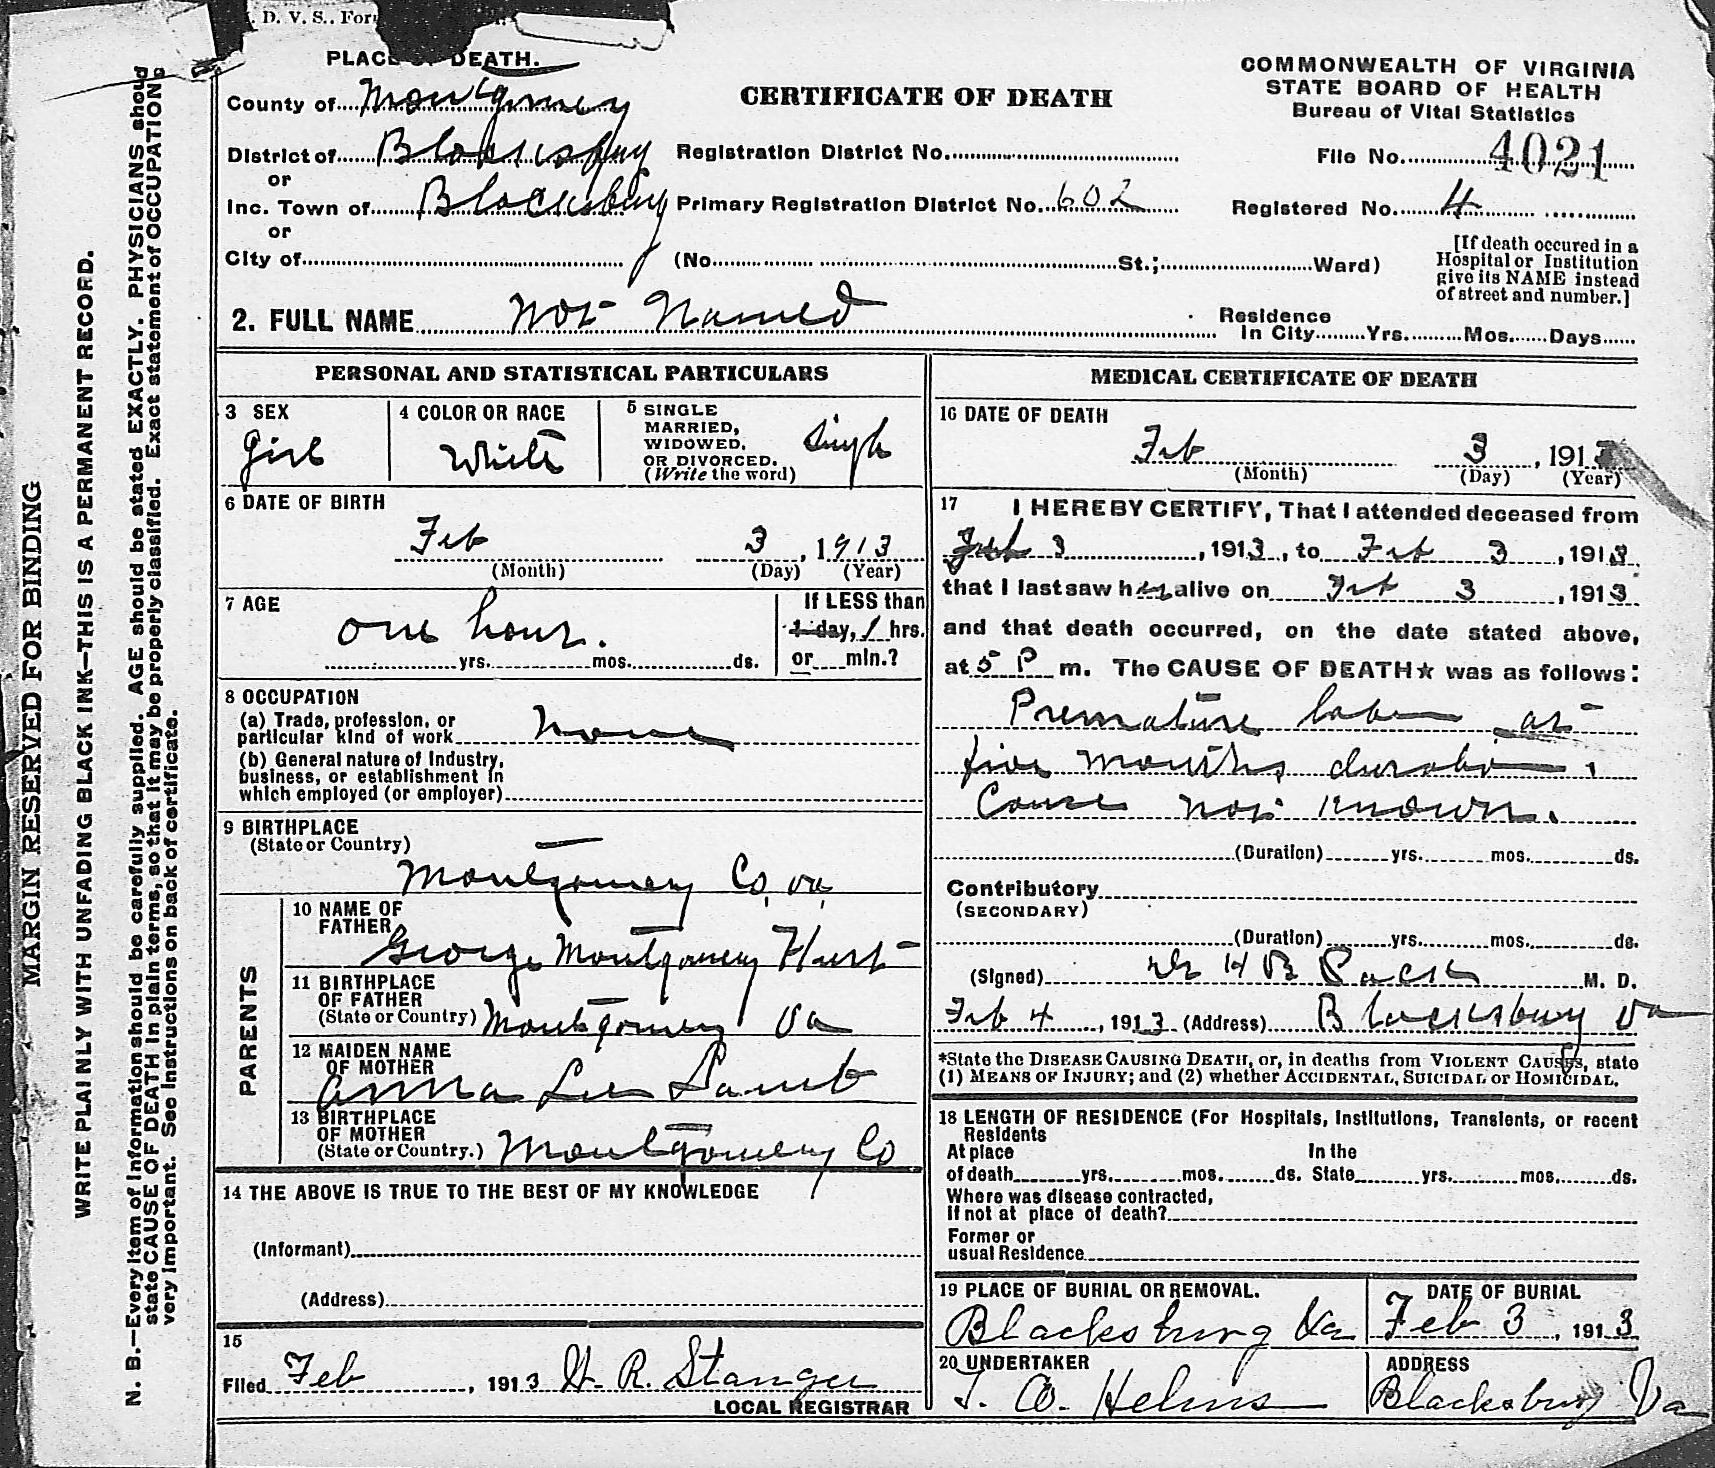 D. V. S., For
PLACE OF DEATH.
COMMONWEALTH OF VIRGINIA
STATE BOARD OF HEALTH
Bureau of Vital Statistics
CERTIFICATE OF DEATH
County of Montgomery
District of Blacksburg
Registration District No.
File No. 4021
or
Inc. Town of Blacksburg
Primary Registration District No. 602
Registered No. 4
or
City of
(No. St.; Ward)
[If death occured in a
Hospital or Institution
give its NAME instead
of street and number.]
2. FULL NAME Not Named
Residence
In City Yrs. Mos. Days
PERSONAL AND STATISTICAL PARTICULARS
3 SEX
Girl
4 COLOR OR RACE
White
5 SINGLE
MARRIED,
WIDOWED,
OR DIVORCED.
(Write the word)
Single
6 DATE OF BIRTH
Feb 3, 1913
(Month) (Day) (Year)
7 AGE
one hour.
yrs. mos. ds.
If LESS than
1 day, 1 hrs.
or min.?
8 OCCUPATION
(a) Trade, profession, or
particular kind of work None
(b) General nature of Industry,
business, or establishment in
which employed (or employer)
9 BIRTHPLACE
(State or Country)
Montgomery Co, Va,
PARENTS
10 NAME OF
FATHER
George Montgomery Hurst
11 BIRTHPLACE
OF FATHER
(State or Country) Montgomery Va
12 MAIDEN NAME
OF MOTHER
Anna Lee Lamb
13 BIRTHPLACE
OF MOTHER
(State or Country.) Montgomery Co
14 THE ABOVE IS TRUE TO THE BEST OF MY KNOWLEDGE
(Informant)
(Address)
15
Filed Feb, 1913
LOCAL REGISTRAR
MEDICAL CERTIFICATE OF DEATH
16 DATE OF DEATH
Feb 3, 1913
(Month) (Day) (Year)
17 I HEREBY CERTIFY, That I attended deceased from
Feb 3, 1913, to Feb 3, 1913,
that I last saw her alive on Feb 3, 1913
and that death occurred, on the date stated above,
at 5 P m. The CAUSE OF DEATH★ was as follows:
Premature labor at
five months duration.
Cause not known.
(Duration) yrs. mos. ds.
Contributory
(SECONDARY)
(Duration) yrs. mos. ds.
(Signed) Dr H B Pack M. D.
Feb 4, 1913 (Address) Blacksburg Va
*State the DISEASE CAUSING DEATH, or, in deaths from VIOLENT CAUSES, state
(1) MEANS OF INJURY; and (2) whether ACCIDENTAL, SUICIDAL or HOMICIDAL.
18 LENGTH OF RESIDENCE (For Hospitals, Institutions, Transients, or recent
Residents
At place In the
of death yrs. mos. ds. State yrs. mos. ds.
Where was disease contracted,
If not at place of death?
Former or
usual Residence
19 PLACE OF BURIAL OR REMOVAL.
Blacksburg Va
DATE OF BURIAL
Feb 3, 1913
20 UNDERTAKER
T. W. Helms
ADDRESS
Blacksburg Va
MARGIN RESERVED FOR BINDING
WRITE PLAINLY WITH UNFADING BLACK INK—THIS IS A PERMANENT RECORD.
N. B.—Every item of information should be carefully supplied. AGE should be stated EXACTLY. PHYSICIANS should
state CAUSE OF DEATH in plain terms, so that it may be properly classified. Exact statement of OCCUPATION
very important. See instructions on back of certificate.